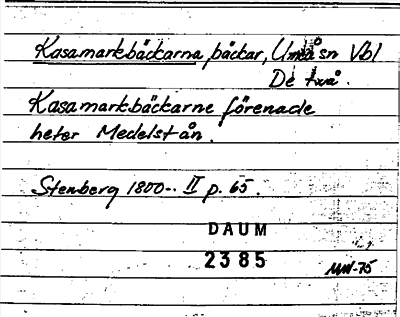 Kasamarkbäckarna, bäckar, Umeå sn Vbl
De två.
Kasamarkbäckarne förenade
heter Medelst ån.
Stenberg 1800-. II p. 65.
DAUM
2385